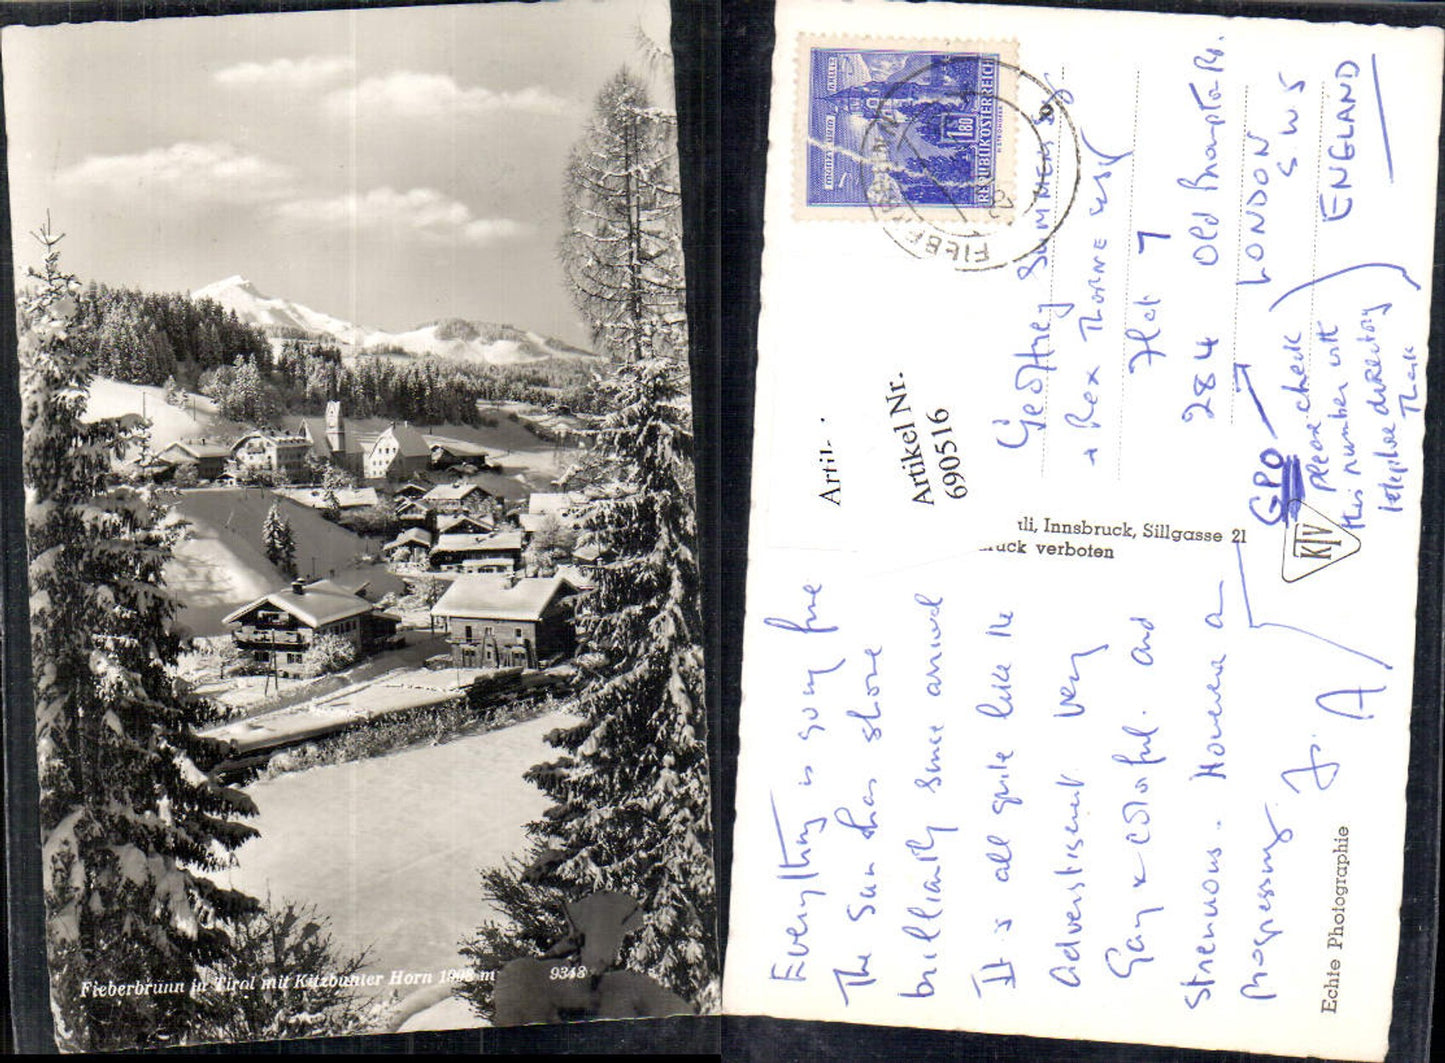 Fieberbrunn in Tirol mit Kitzbühler Horn 1998 m
9348
MARIAZELL
1.80
REPUBLIK ÖSTERREICH
FIEBERBRUNN
Artikel Nr.
690516
Innsbruck, Sillgasse 21
verboten
KTV
Echte Photographie
Geoffrey Summers Esq
+ Rex Thorne Esq
Flat 7
284 Old Brompton Rd.
LONDON
S W 5
ENGLAND
GPO
Please check
this number with
telephone directory
Thank
Everything is going fine
The Sun has shone
brilliantly since arrival
It is all quite like the
Advertisement very
Gay & colorful. and
strenuous. However a
progressing